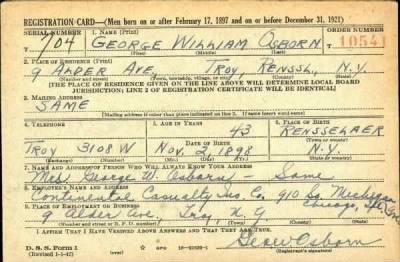 REGISTRATION CARD—(Men born on or after February 17, 1897 and on or before December 31, 1921)
SERIAL NUMBER 1. NAME (Print) ORDER NUMBER
T 704 GEORGE WILLIAM OSBORN 10541
(First) (Middle) (Last)
2. PLACE OF RESIDENCE (Print)
9 ALDER AVE, TROY, RENSSL, N.Y.
(Number and street) (Town, township, village, or city) (County) (State)
[THE PLACE OF RESIDENCE GIVEN ON THE LINE ABOVE WILL DETERMINE LOCAL BOARD
JURISDICTION; LINE 2 OF REGISTRATION CERTIFICATE WILL BE IDENTICAL]
3. MAILING ADDRESS
SAME
[Mailing address if other than place indicated on line 2. If same insert word same]
4. TELEPHONE 5. AGE IN YEARS 6. PLACE OF BIRTH
43 RENSSELAER
DATE OF BIRTH (Town or county)
TROY 3108 W Nov. 2, 1898 N.Y.
(Exchange) (Number) (Mo.) (Day) (Yr.) (State or country)
7. NAME AND ADDRESS OF PERSON WHO WILL ALWAYS KNOW YOUR ADDRESS
Mrs. George W. Osborn - Same
8. EMPLOYER'S NAME AND ADDRESS
Continental Casualty Ins Co. 910 So. Michigan
Chicago, Ill.
9. PLACE OF EMPLOYMENT OR BUSINESS
9 Alder Ave, Troy, N.Y.
(Number and street or R. F. D. number) (Town) (County) (State)
I AFFIRM THAT I HAVE VERIFIED ABOVE ANSWERS AND THAT THEY ARE TRUE.
D. S. S. Form 1
(Revised 1-1-42) (over)
Geo W Osborn
(Registrant's signature)